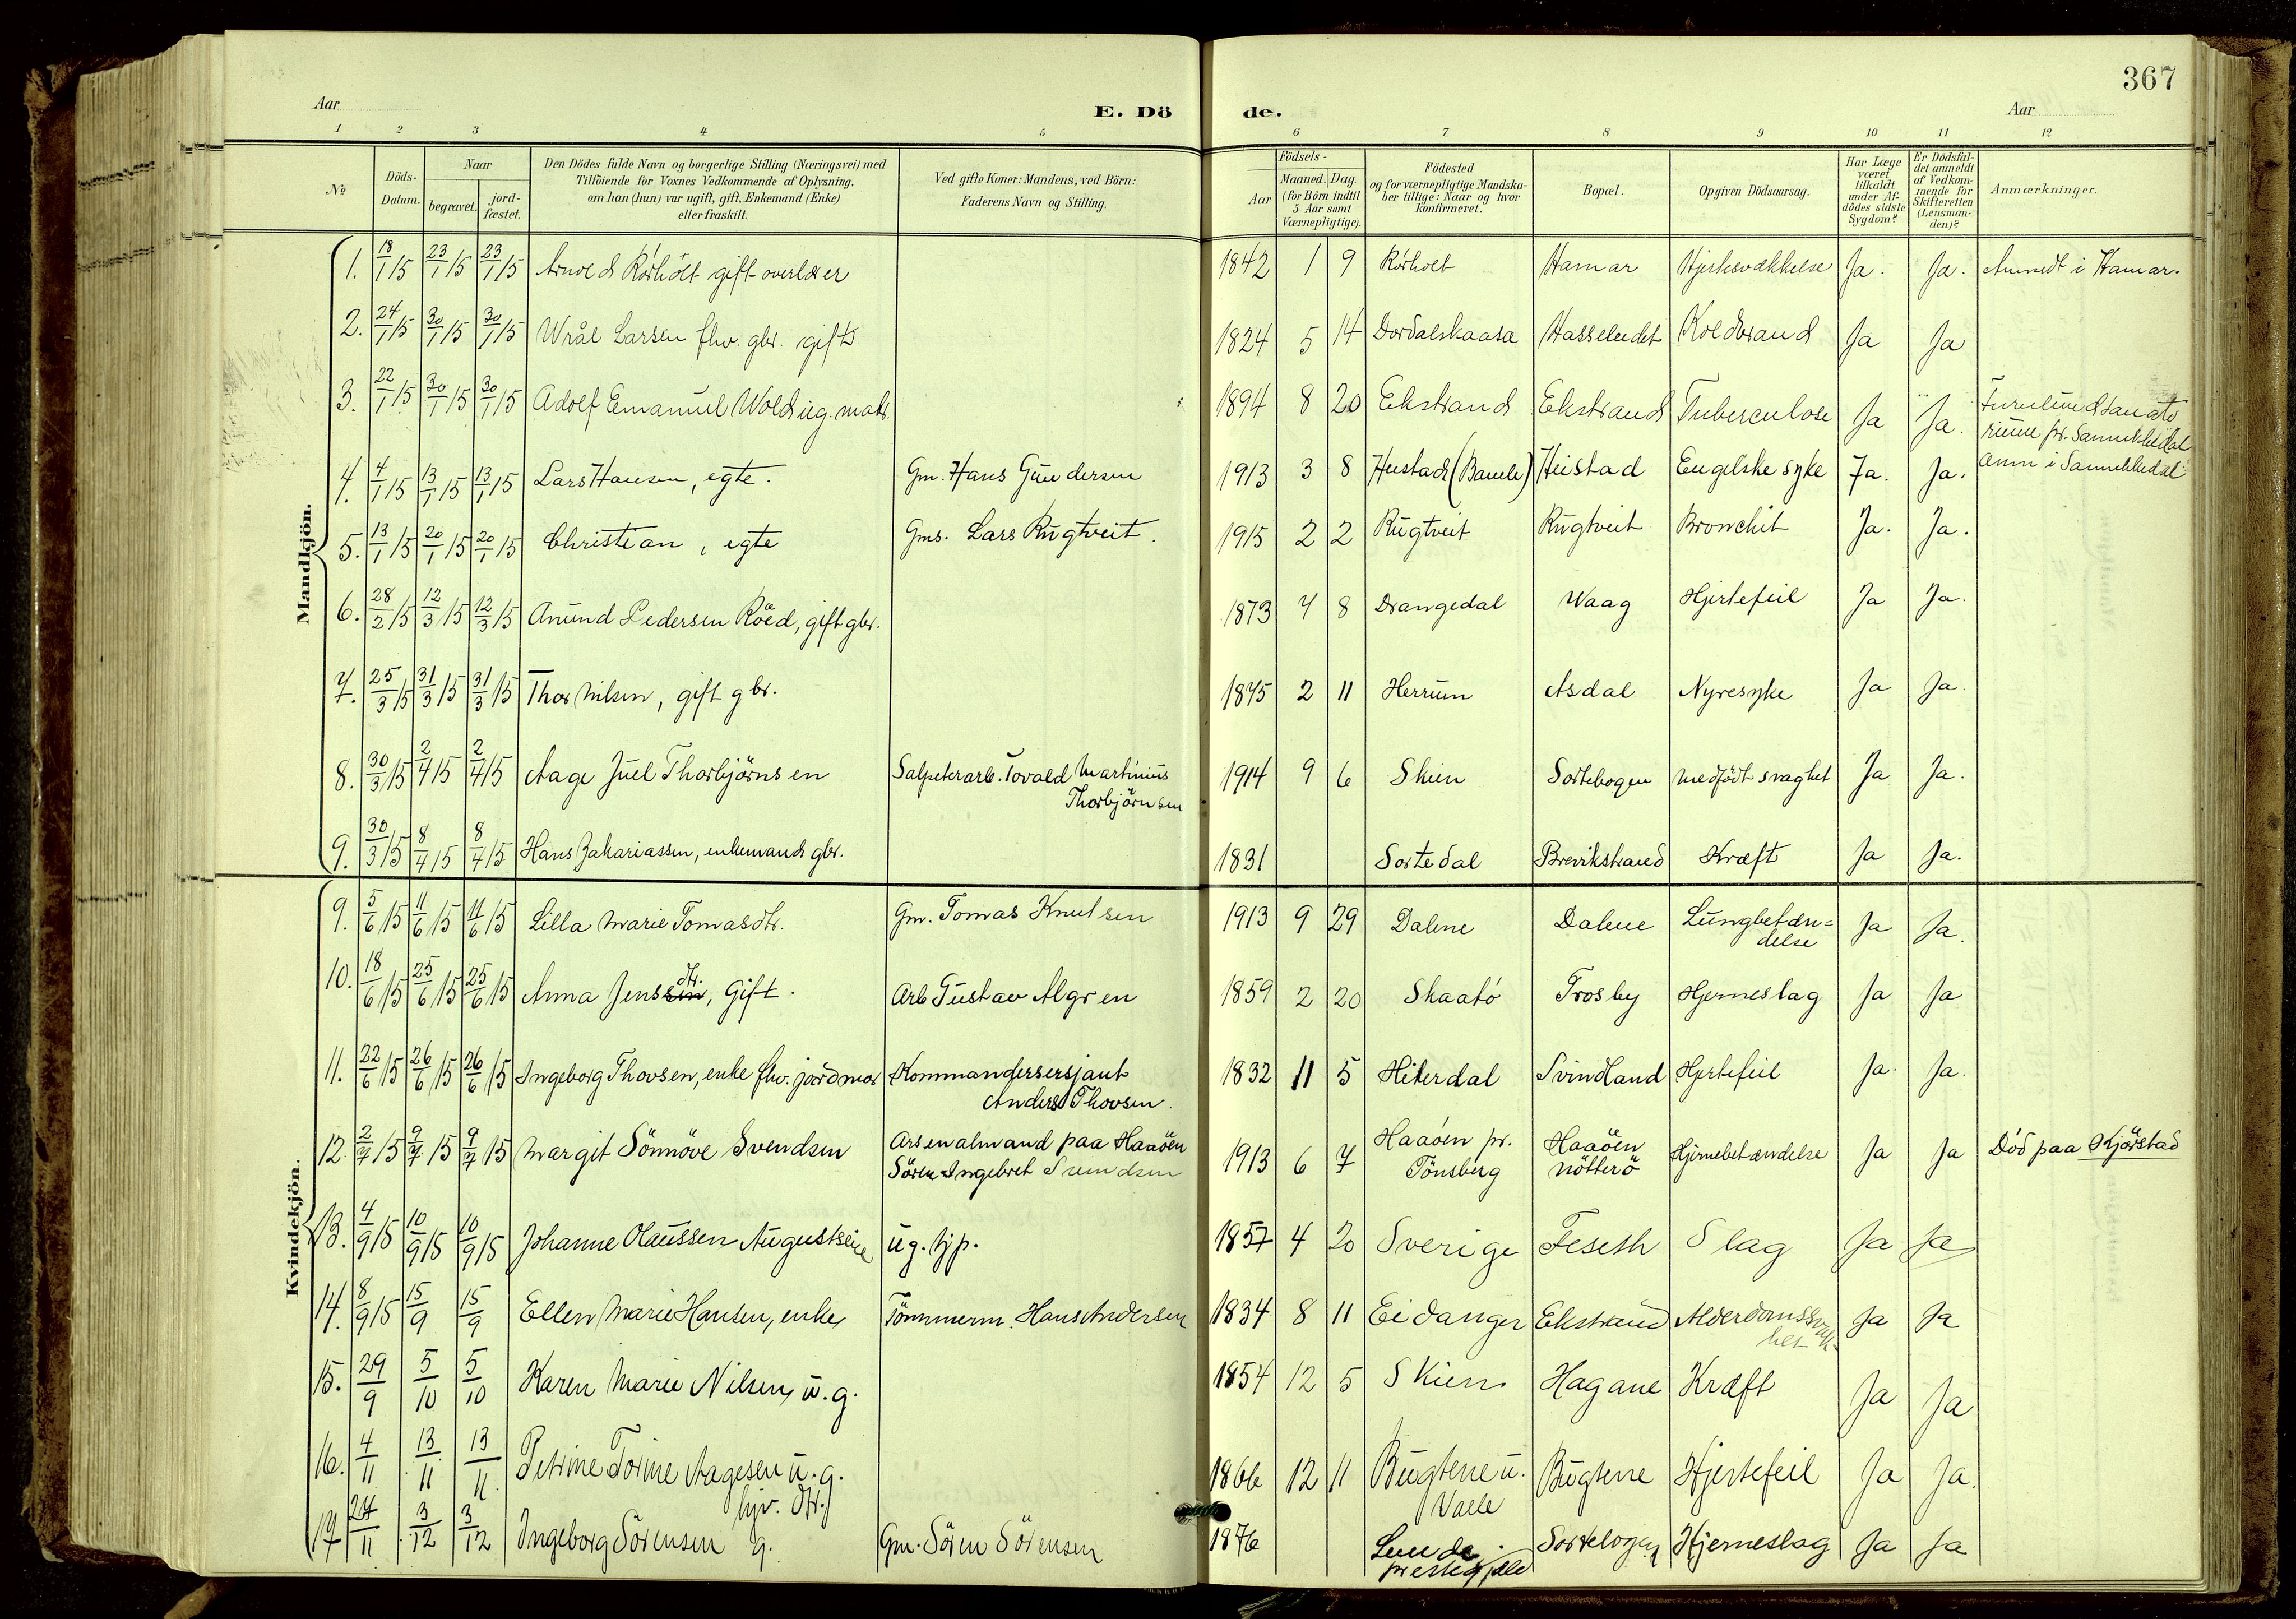 367
Aar
E. Dö
de.
Aar
1 2 3 4 5 6 7 8 9 10 11 12
No
Döds-Datum.
Naar
begravet.
jord-fæstet.
Den Dödes fulde Navn og borgerlige Stilling (Næringsvei) med
Tilföiende for Voxnes Vedkommende af Oplysning,
om han (hun) var ugift, gift, Enkemand (Enke)
eller fraskilt.
Ved gifte Koner: Mandens, ved Börn:
Faderens Navn og Stilling.
Födsels-
Aar
Maaned. Dag.
(for Börn indtil
5 Aar samt
Værnepligtige).
Födested
og for værnepligtige Mandska-
ber tillige: Naar og hvor
konfirmeret.
Bopæl.
Opgiven Dödsaarsag.
Har Læge
været
tilkaldt
under Af-
dödes sidste
Sygdom?
Er Dödsfal-
det anmeldt
af Vedkom-
mende for
Skifteretten
(Lensman-
den)?
Anmærkninger.
Mandkjön.
1. 18/1 15 23/1 15 23/1 15 Arnold Rörholt gift overlærer 1842 1 9 Rörholt Hamar Hjertesvækkelse Ja. Ja. Anmeldt i Hamar.
2. 24/1 15 30/1 15 30/1 15 Wrål Larsen fhv. gbr. gift 1824 5 14 Dordalskaasa Hasseludet Koldbrand Ja Ja
3. 22/1 15 30/1 15 30/1 15 Adolf Emanuel Wold ug. matr. 1894 8 20 Ekstrand Ekstrand Tuberculose Ja Ja. Furulund Sanato
rium pr. Sannikedal
anm i Sannikedal
4. 4/1 15 13/1 15 13/1 15 Lars Hansen, egte. Gm. Hans Gundersen 1913 3 8 Heistad (Bamle) Heistad Engelske syke Ja. Ja.
5. 13/1 15 20/1 15 20/1 15 Christian, egte Gms. Lars Rugtveit. 1915 2 2 Rugtveit Rugtveit Bronchit Ja. Ja.
6. 28/2 15 12/3 15 12/3 15 Anund Pedersen Röed, gift gbr. 1873 7 8 Drangedal Waag Hjertefeil Ja Ja.
7. 25/3 15 31/3 15 31/3 15 Thor Nilsen, gift gbr. 1875 2 11 Herrum Asdal Nyresyke Ja Ja.
8. 30/3 15 2/4 15 2/4 15 Aage Juel Thorbjörnsen Salpeterarb. Tovald Martinius
Thorbjörnsen 1914 9 6 Skien Sortebogen Medfödt svaghet Ja Ja.
9. 30/3 15 8/4 15 8/4 15 Hans Zakariassen, enkemand gbr. 1831 Sortedal Brevikstrand Kræft Ja Ja.
Kvindekjön.
9. 5/6 15 11/6 15 11/6 15 Lilla Marie Tomasdtr. Gm. Tomas Knutsen 1913 9 29 Dalene Dalene Lungbetæn=
delse Ja Ja.
10. 18/6 15 25/6 15 25/6 15 Anna Jenssen dtr., Gift. Arb Gustav Algren 1859 2 20 Skaatö Trosby Hjerneslag Ja Ja
11. 22/6 15 26/6 15 26/6 15 Ingeborg Thovsen, enke fhv. jordmor Kommandersersjant
Anders Thovsen. 1832 11 5 Hiterdal Svindland Hjertefeil Ja. Ja.
12. 2/7 15 9/7 15 9/7 15 Margit Sönnöve Svendsen Arsenalmand paa Haaöen
Sören Ingebret Svendsen 1913 6 7 Haaöen pr.
Tönsberg Haaöen
Nötterö Hjernebetændelse Ja Ja Död paa Kjörstad
13. 4/9 15 10/9 15 10/9 15 Johanne Olaussen Augustsen ug. hjp. 1857 4 20 Sverige Feseth Slag Ja Ja
14. 8/9 15 15/9 15/9 Ellen Marie Hansen, enke, Tömmerm. Hans Andersen 1834 8 11 Eidanger Ekstrand Alderdomssvak-
het Ja Ja
15. 29/9 5/10 5/10 Karen Marie Nilsen, u.g. 1854 12 5 Skien Hagane Kræft Ja Ja
16. 4/11 13/11 13/11 Petrine Torine Aagesen u.g.
hjv. dtr. 1866 12 11 Bugtene u.
Valle Bugtene Hjertefeil Ja Ja.
17 24/11 3/12 3/12 Ingeborg Sörensen g. Gm. Sören Sörensen 1876 Lunde
prestegjeld Sortebogen Hjerneslag Ja Ja